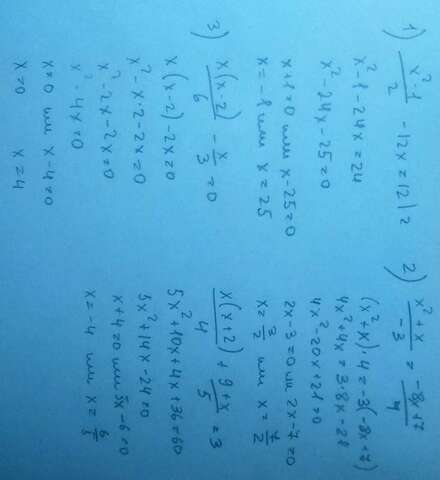 1) (x²-1)/2 - 12x = 12 |·2
x²-1-24x=24
x²-24x-25=0
x+1=0 или x-25=0
x=-1 или x=25
3) x(x-2)/6 - x/3 = 0
x(x-2)-2x=0
x²-x·2-2x=0
x²-2x-2x=0
x²-4x=0
x=0 или x-4=0
x=0 x=4
2) (x²+x)/-3 = (-8x+7)/4
(x²+x)·4=-3(-8x+7)
4x²+4x=3·8x-21
4x²-20x+21=0
2x-3=0 или 2x-7=0
x=3/2 или x=7/2
x(x+2)/4 + (9+x)/5 = 3
5x²+10x+4x+36=60
5x²+14x-24=0
x+4=0 или 5x-6=0
x=-4 или x=6/5